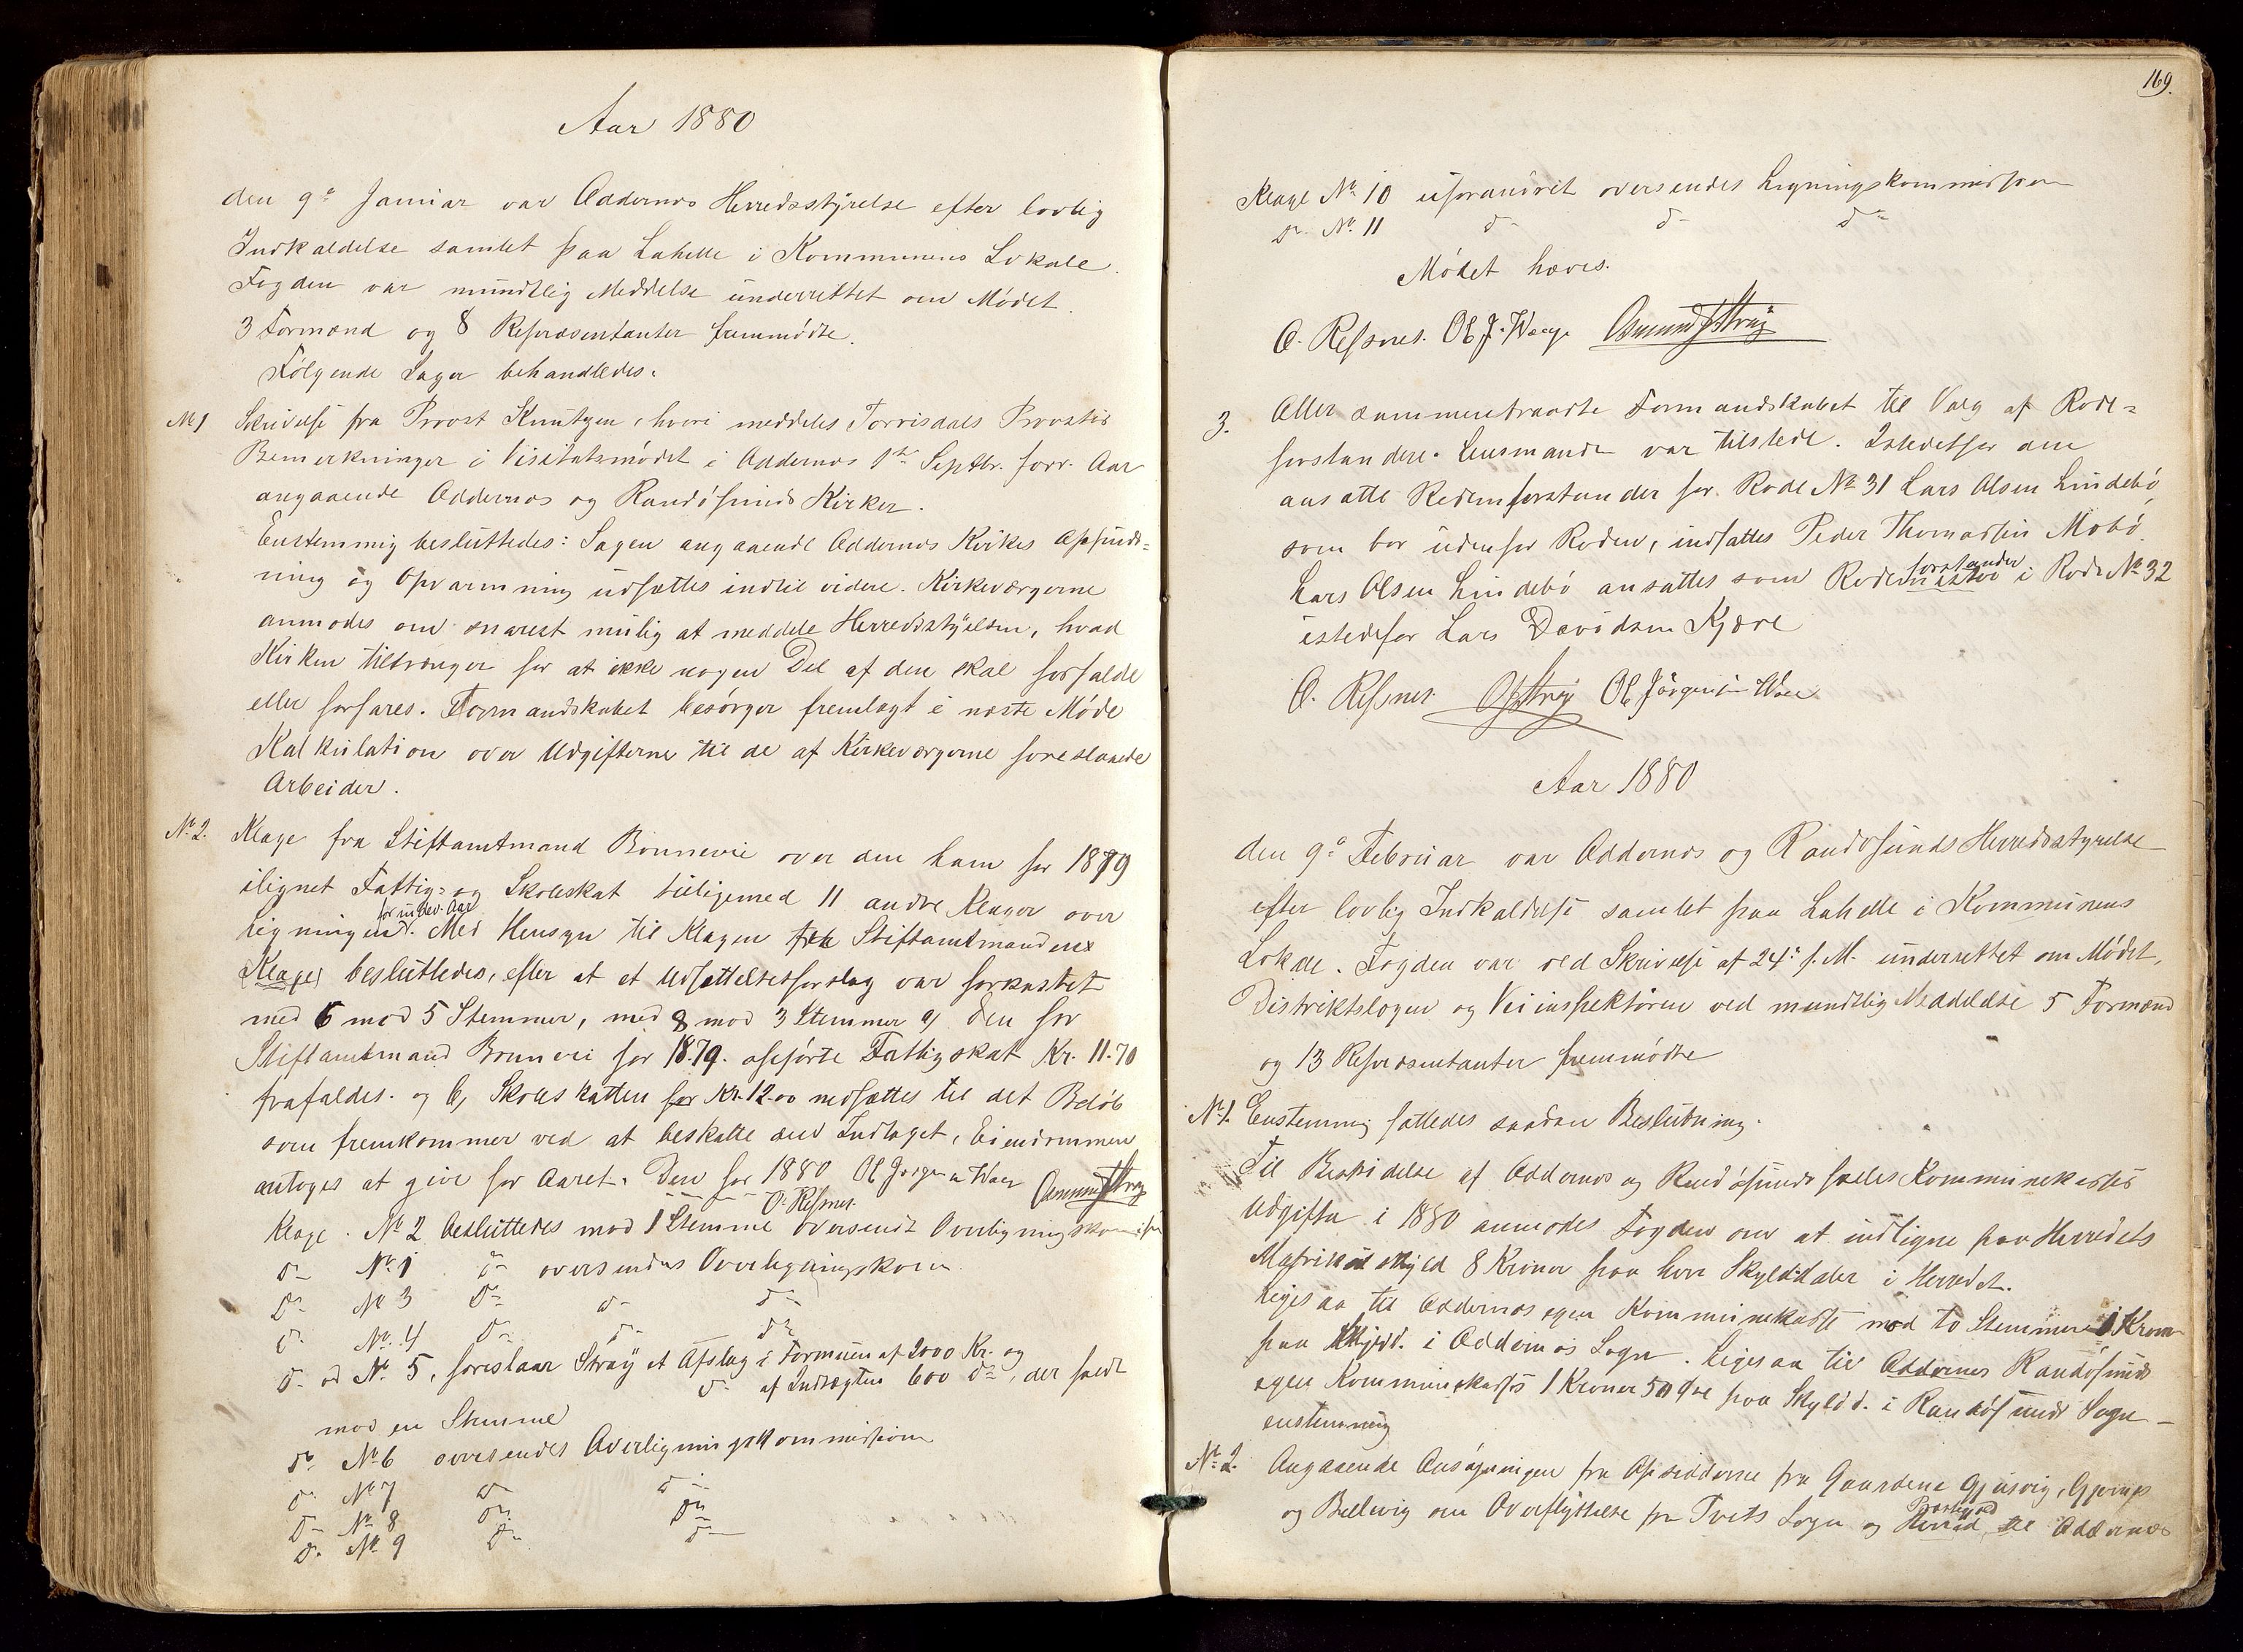 Aar 1880
den 9de Januar var Oddernes Herredsstyrelse efter lovlig
Indkaldelse samlet paa Lahelle i Kommunens Lokale.
Fogden var mundtlig Meddelse underrettet om Mødet.
3 Formænd og 8 Repræsentanter fremmødte.
Følgende Sager behandledes:
No 1 Skrivelse fra Provst Knutzen, hvori meddeles Torrisdals Provsties
Bemerkninger i Visitatsmødet i Oddernes 1ste Septbr. forr. Aar
angaaende Oddernes og Randøsunds Kirker.
Enstemmig besluttedes: Sagen angaaende Oddernes Kirkes Oppuds=
ning og Opvarmning udsættes indtil videre. Kirkeværgerne
anmodes om snarest mulig at meddele Herredsstyrelsen, hvad
Kirken tiltrænger for at ikke nogen Del af den skal forfalde
eller forfares. Formandskabet besørger fremlagt i næste Møde
Kalkulation over Udgifterne til de af Kirkeværgerne foreslaaede
Arbeider.
No 2. Klage fra Stiftamtmand Bonnevie over den ham for 1879
ilignet Fattig= og Skoleskat tilligemed 11 andre Klager over
Ligningen for nævnte Aar. Med Hensyn til Klagen fra Stiftamtmandens
(Klage) besluttedes, efter at et Udsættelsesforslag var forkastet
med 6 mod 5 Stemmer, med 8 mod 3 Stemmer a) den for
Stiftamtmand Bonnevie for 1879. opførte Fattigskat Kr. 11.70
frafaldes. og b) Skoleskatten for Kr. 12.00 nedsættes til det Beløb
som fremkommer ved at beskatte den Indtægt, Eiendommen
antages at give for Aaret. Den for 1880 Ol Jørgensen Waage Osmund Strøy
O. Repsnes.
Klage No 2 besluttedes mod 1 Stemme oversendt Overligningskommission
Do No 1 do oversendes Overligningskom
Do No 3 Do do do
Do No 4 Do do do
Do ad No 5, foreslaar Strøy et Afslag i Formuen af 2000 Kr. og
do af Indtægten 600 do, der faldt
mod en Stemme
Do No 6 oversendes Overligningskommission
Do No 7 do do
Do No 8 do do
Do No 9 do do
169.
Klage No 10 uforandret oversendes Ligningskommission
Do No 11 do do do
Mødet hæves.
O. Repsnes. Ol J. Waage Osmund Strøy
3. Aller sammentraadte Formandskabet til Valg af Rode=
forstandere. Lensmanden var tilstede. Istedetfor den
ansatte Rodeforstander for Rode No 31 Lars Olsen Lindebø,
som bor udenfor Roden, indsattes Peder Thomassen Mobø.
Lars Olsen Lindebø ansattes som Rodemester forstander i Rode No 32
istedefor Lars Davidsen Kjære
O. Repsnes. O Strøy Ol Jørgensen Waa
Aar 1880
den 9de Februar var Oddernes og Randøsunds Herredsstyrelse
efter lovlig Indkaldelse samlet paa Lahelle i Kommunens
Lokale. Fogden var ved Skrivelse af 24de f. M. underrettet om Mødet,
Distriktslægen og Veiinspektøren ved mundtlig Meddelelse 5 Formænd
og 13 Repræsentanter fremmødte
No 1. Enstemmig fattedes saadan Beslutning.
Til Bestridelse af Oddernes og Randøsunds fælles Kommunekasses
Udgifter i 1880 anmodes Fogden om at indligne paa Herredets
Matrikulskyld 8 Kroner paa hver Skylddaler i Herredet.
Ligesaa til Oddernes egen Kommunekasse mod to Stemmer 1 Krone
paa Skyldd. i Oddernes Sogn. Ligesaa til Oddernes Randøsunds
egen Kommunekasses 1 Kroner 50 Øre paa Skyldd. i Randøsunds Sogn -
enstemmig
No 2. Angaaende Ansøgningen fra Opsidderne fra Gaardene Gjusvig, Gjerups
og Bellevig om Overflyttelse fra Tvets Sogn og Herred Præstegjeld til Oddernes